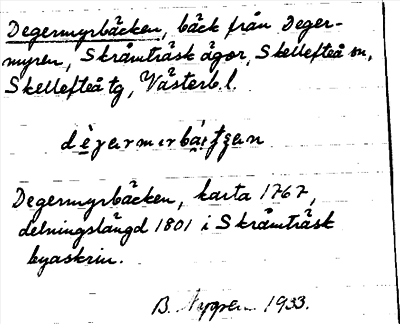 Degermyrbäcken, bäck från Deger-
myren, Skråmträsk ägor, Skellefteå sn,
Skellefteå tg, Västerb. l.
Degermyrbäcken, karta 1767,
delningslängd 1801 i Skråmträsk
byaskrin.
B. Nygren 1933.